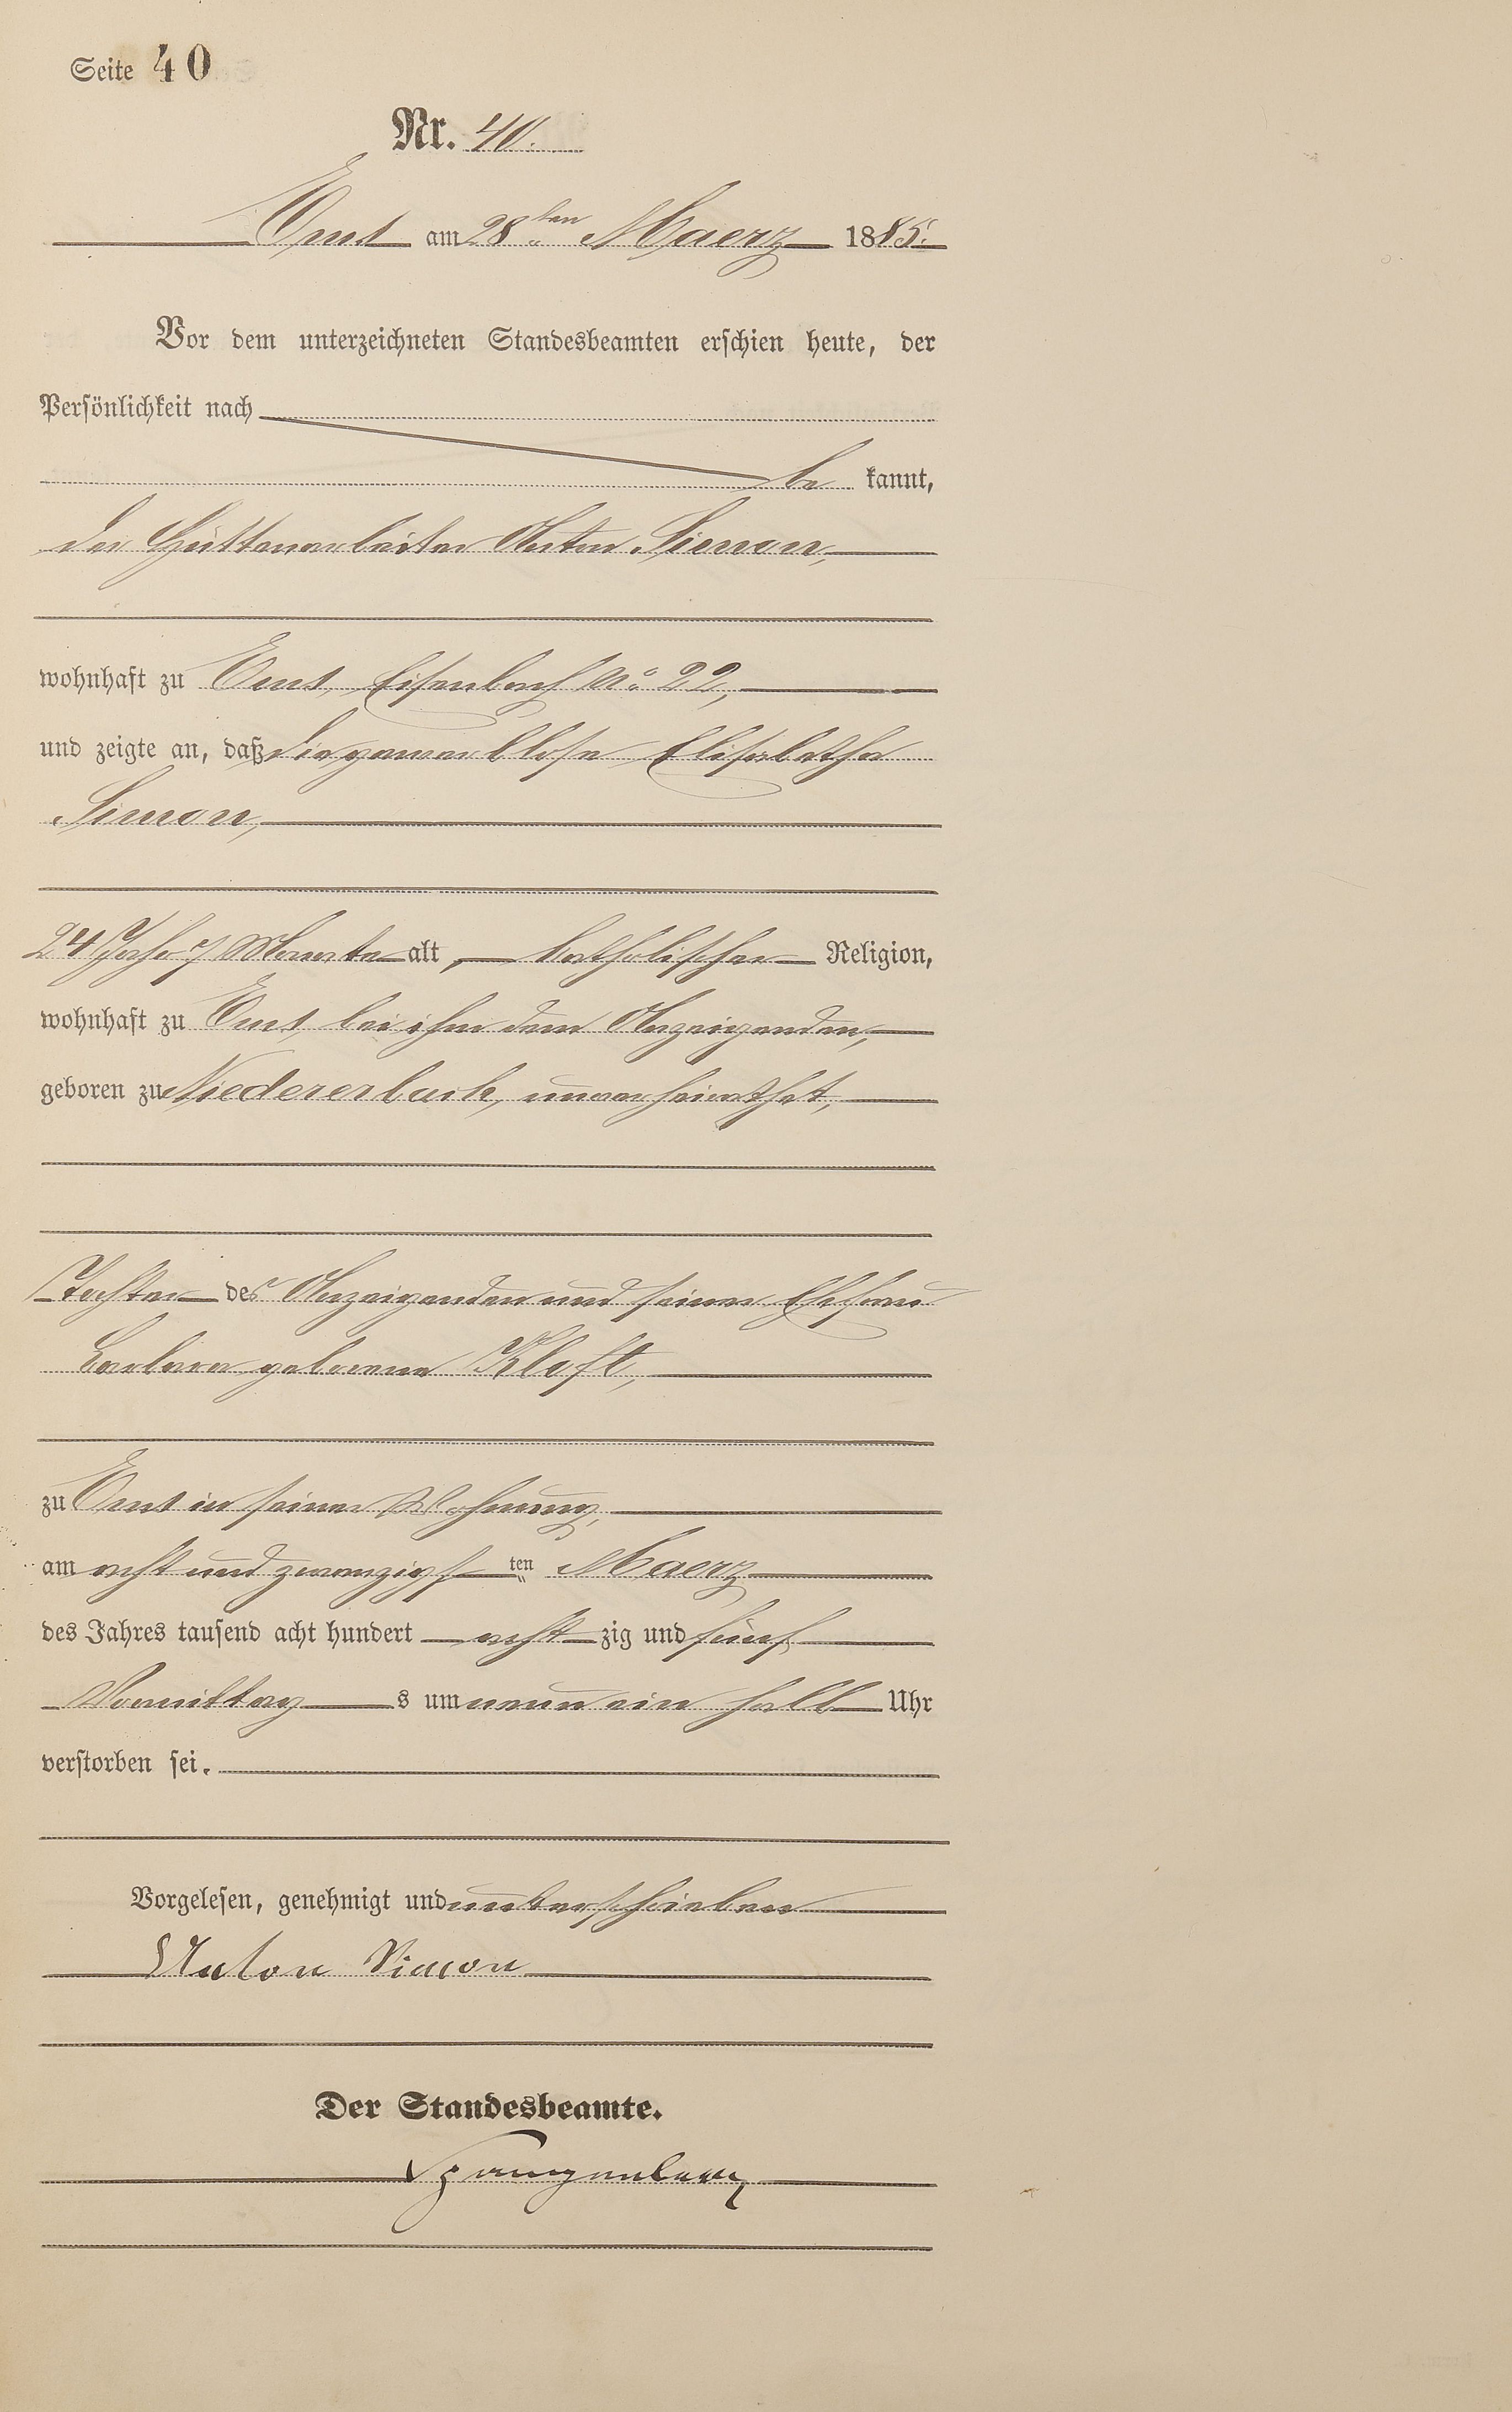 Seite 40
Nr. 40.
Ems am 28ten Maerz 1885.
Vor dem unterzeichneten Standesbeamten erschien heute, der
Persönlichkeit nach
be kannt,
der Hüttenarbeiter Anton Simon,
wohnhaft zu Ems, Eisenbach No 22,
und zeigte an, daß die gewerblose Elisabetha
Simon,
24 Jahr 7 Monate alt, katholischer Religion,
wohnhaft zu Ems, bei ihm dem Anzeigenden,
geboren zu Niedererbach, unverheirathet,
Tochter des Anzeigenden und seiner Ehefrau
Barbara geborene Kloft,
zu Ems in seiner Wohnung,
am acht und zwanzigsten Maerz
des Jahres tausend acht hundert acht zig und fünf
Vormittag s um neun ein halb Uhr
verstorben sei.
Vorgelesen, genehmigt und unterschrieben
Anton Simon
Der Standesbeamte.
Spangenberg